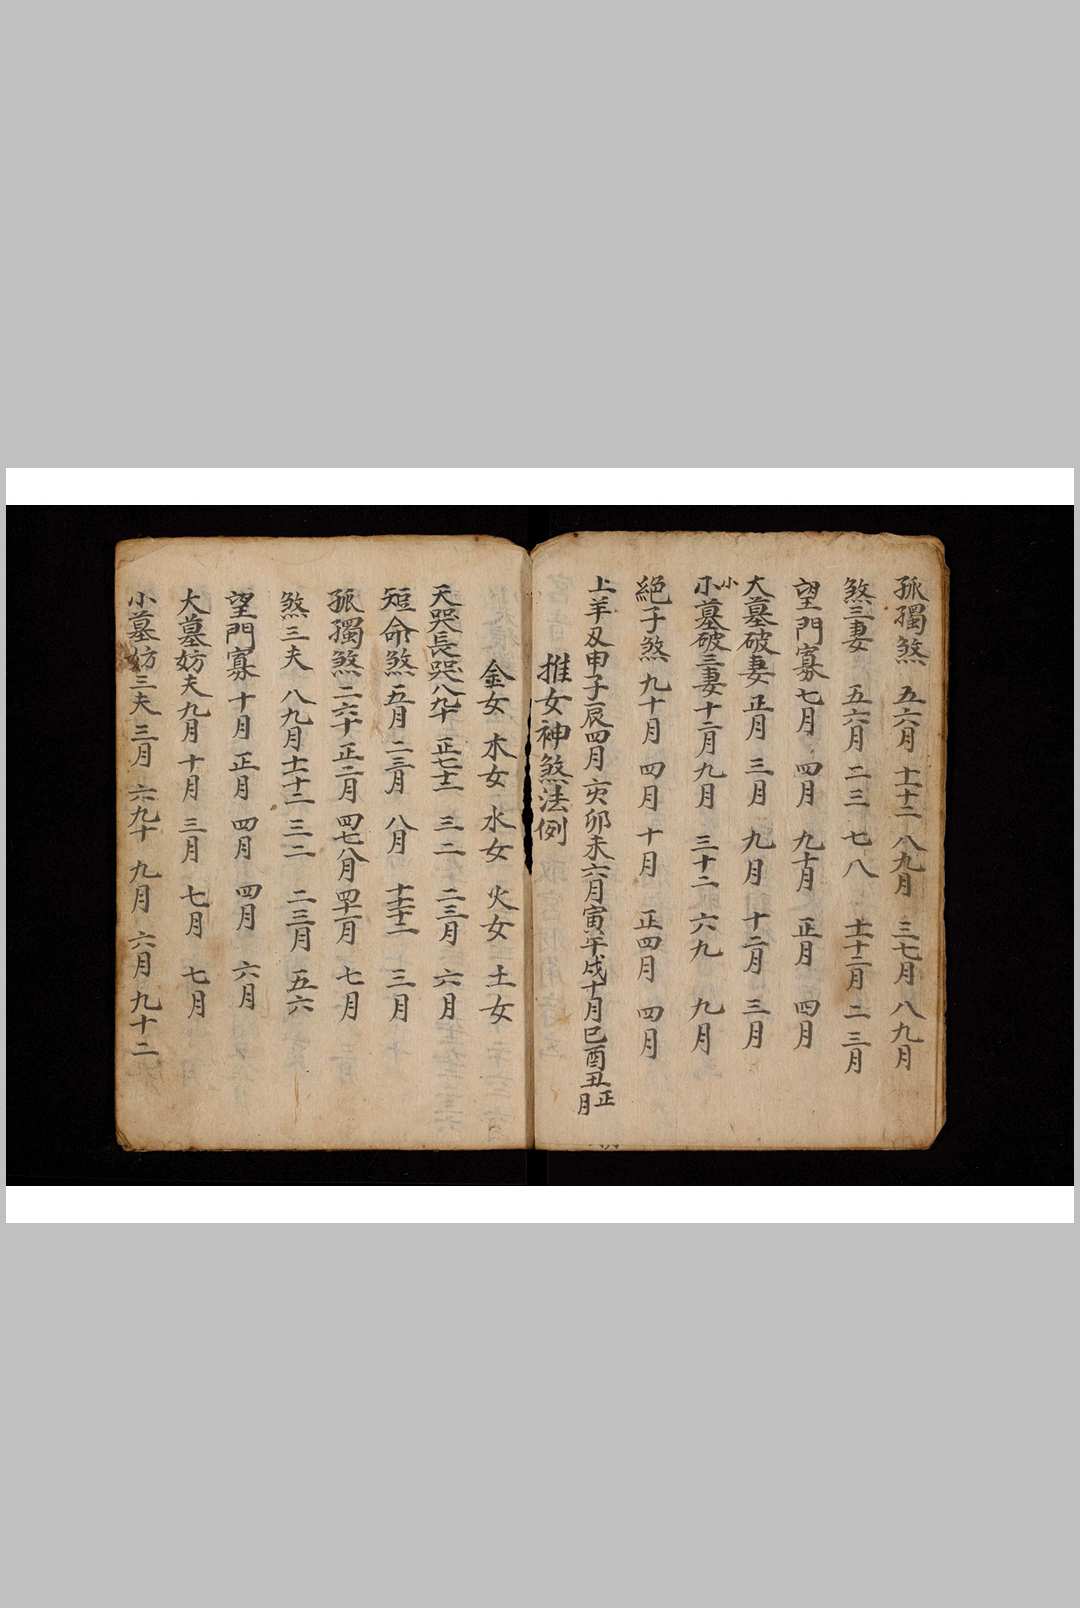 孤獨煞 五六月 十十二 八九月 三七月 八九月
煞三妻 五六月 二三 七八 十十二月 二三月
望門寡 七月 四月 九十月 正月 四月
大墓破妻 正月 三月 九月 十二月 三月
小墓破三妻 十二月 九月 三十二 六九 九月
絕子煞 九十月 四月 十月 正四月 四月
上羊刄申子辰四月 亥卯未六月 寅午戌十月 巳酉丑正月
推女神煞法例
金女 木女 水女 火女 土女
天哭長哭 八九十 正七十二 三二 二三月 六月
短命煞 五月 二三月 八月 十十二 三月
孤獨煞 二六十 正二月 四七八月 四十二月 七月
煞三夫 八九月 十十二 三二 二三月 五六
望門寡 十月 正月 四月 四月 六月
大墓妨夫 九月 十月 三月 七月 七月
小墓妨三夫 三月 六九十 九月 六月 九十二